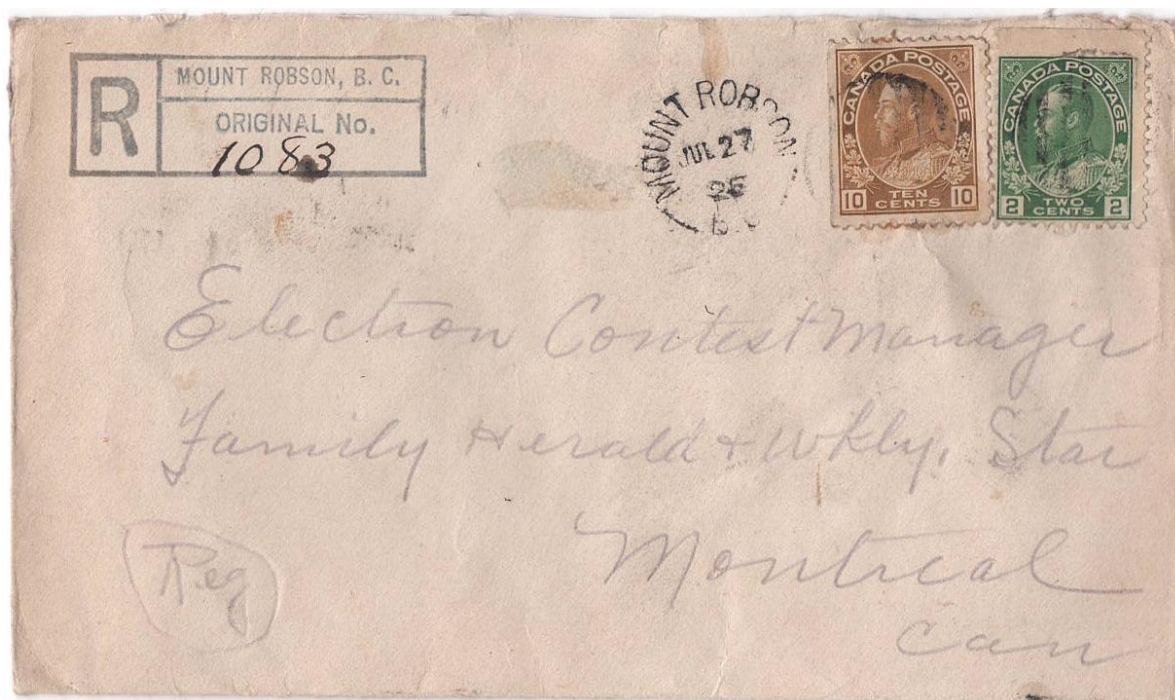 R
MOUNT ROBSON, B. C.
ORIGINAL No.
1083
MOUNT ROBSON
JUL 27
25
B.C
CANADA POSTAGE
10 TEN CENTS 10
CANADA POSTAGE
2 TWO CENTS 2
Election Contest Manager
Family Herald + Wkly. Star
Montreal
Can
Reg